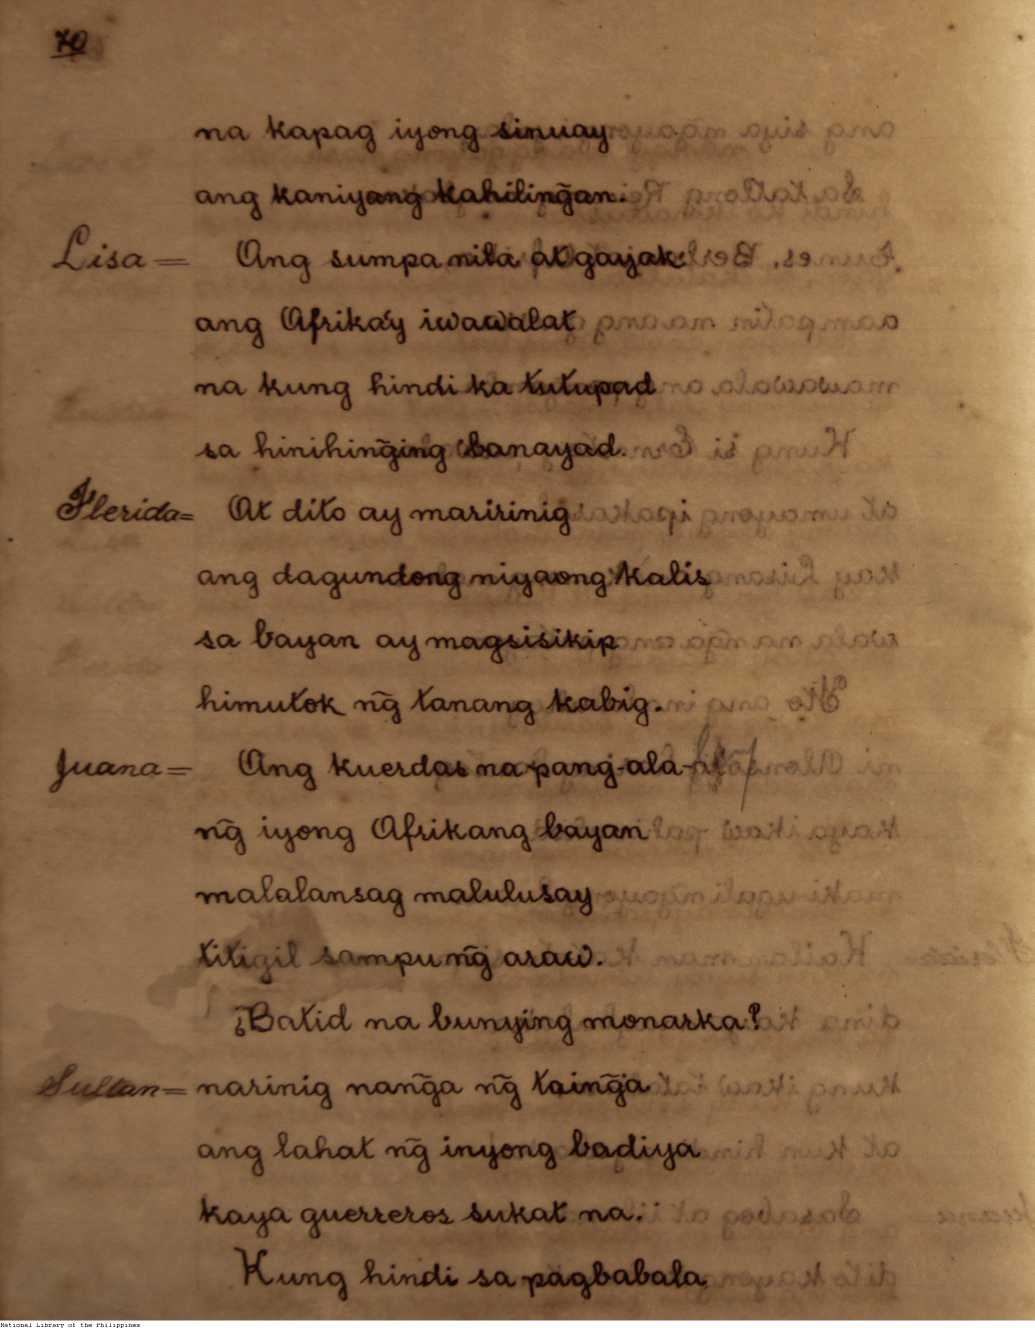 70
na kapag iyong sinuay
ang kaniyang kahilinḡan.
Lisa = Ang sumpa nila at gayak
ang Afrika'y iwawalat
na kung hindi ka tutupad
sa hinihinḡing banayad.
Flerida = At dito ay maririnig
ang dagundong niyaong kalis
sa bayan ay magsisikip
himutok nḡ tanang kabig.
Juana = Ang kuerdas na pang-ala-
nḡ iyong Afrikang bayan
malalansag malulusay
titigil sampu nḡ araw.
¿Batid na bunying monarka?
Sultan = narinig nanḡa nḡ tainḡa
ang lahat nḡ inyong badiya
kaya guerreros sukat na.
Kung hindi sa pagbabala
National Library of the Philippines